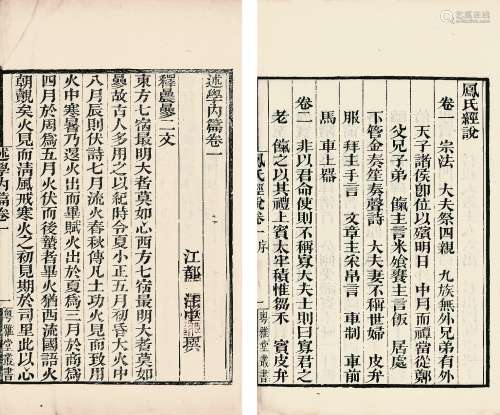 鳳氏經說
卷一 宗法 大夫祭四親 九族無外兄弟有外
天子諸侯卽位以殯明日 中月而禫當從鄭
父兄子弟 饎主言米飧饔主言飯 居處
下管金奏笙奏聲詩 大夫妻不稱世婦 皮弁
服 拜主手言 文主采帛言 車制 車前
馬 車上器
卷二 非以君命使則不稱寡大夫士則曰寡君之
老 饋之以其禮上賓太牢積惟芻禾 賓皮弁
鳳氏經說卷一序
粵雅堂叢書
述學內篇卷一
江都 汪中 撰
釋晨曑二文
東方七宿最明大者莫如心西方七宿最明大者莫如
曑故古人多用之以紀時令夏小正五月初昏大火中
八月辰則伏詩七月流火春秋傳凡土功火見而致用
火中寒暑乃退火出而畢賦火出於夏爲三月於商爲
四月於周爲五月火伏而後蟄者畢火猶西流國語火
朝覿矣火見而清風戒寒火之初見期於司里此以心
述學內篇卷一
粵雅堂叢書